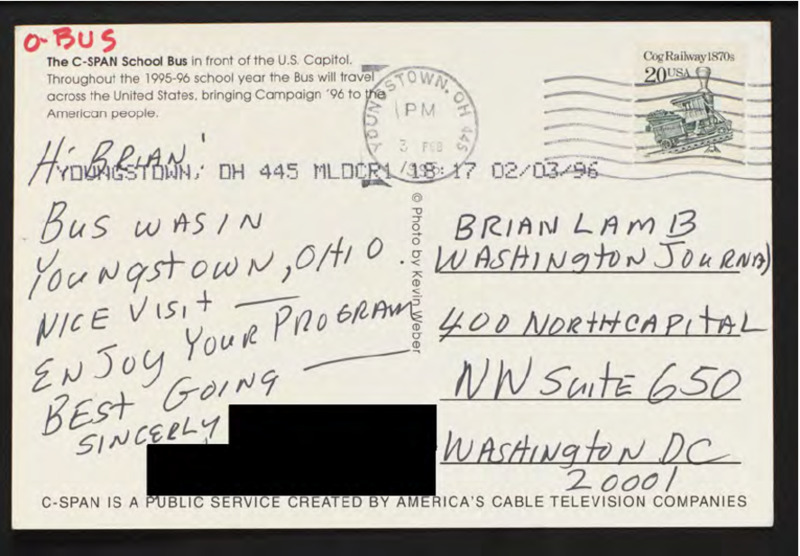 O-BUS
The C-SPAN School Bus in front of the U.S. Capitol.
Throughout the 1995-96 school year the Bus will travel
across the United States, bringing Campaign '96 to the
American people.
Cog Railway 1870s
20 USA
YOUNGSTOWN, OH 445
PM
3 FEB
YOUNGSTOWN, OH 445 MLOCR1 18:17 02/03/96
Hi BRIAN!
BUS WAS IN
YOUNGSTOWN, OHIO.
NICE VISIT —
ENJOY YOUR PROGRAM
BEST GOING —
SINCERLY,
© Photo by Kevin Weber
BRIAN LAMB
WASHINGTON JOURNAL
400 NORTH CAPITAL
NW SUITE 650
WASHINGTON DC
20001
C-SPAN IS A PUBLIC SERVICE CREATED BY AMERICA'S CABLE TELEVISION COMPANIES